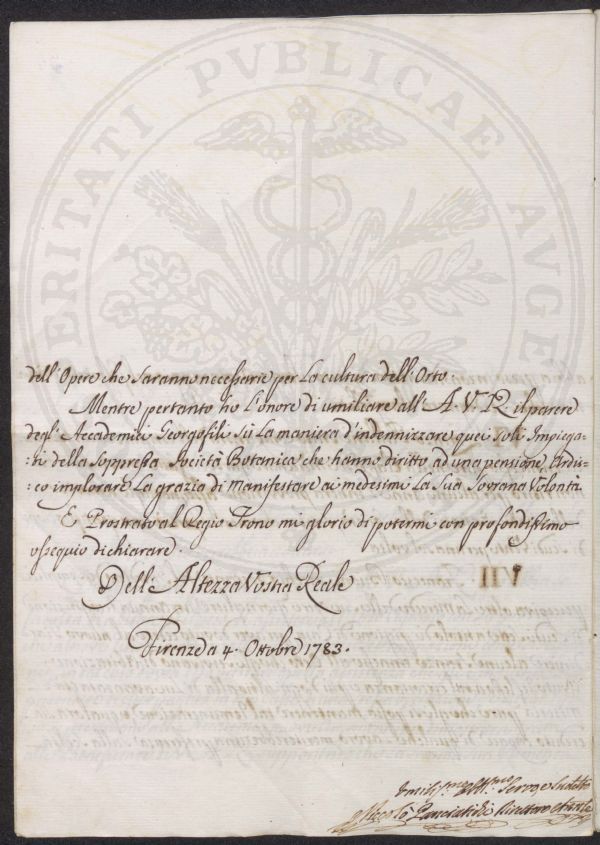 PROSPERITATI PVBLICAE AVGENDAE
dell'Opere che saranno necessarie per la cultura dell'Orto.
Mentre pertanto ho l'onore di umiliare all'A. V. R. il parere
degl'Accademici Georgofili sù la maniera d'indennizzare quei soli Impiega=
=ti della soppressa Società Botanica che hanno diritto ad una pensione, ardis=
=co implorare la grazia di manifestare ai medesimi la Sua Sovrana Volontà.
E Prostrato al Regio Trono mi glorio di potermi con profondissimo
ossequio dichiarare.
Dell'Altezza Vostra Reale
Firenze da 4. Ottobre 1783.
Servo, e Suddito
Niccolò Panciatichi Direttore Attuale